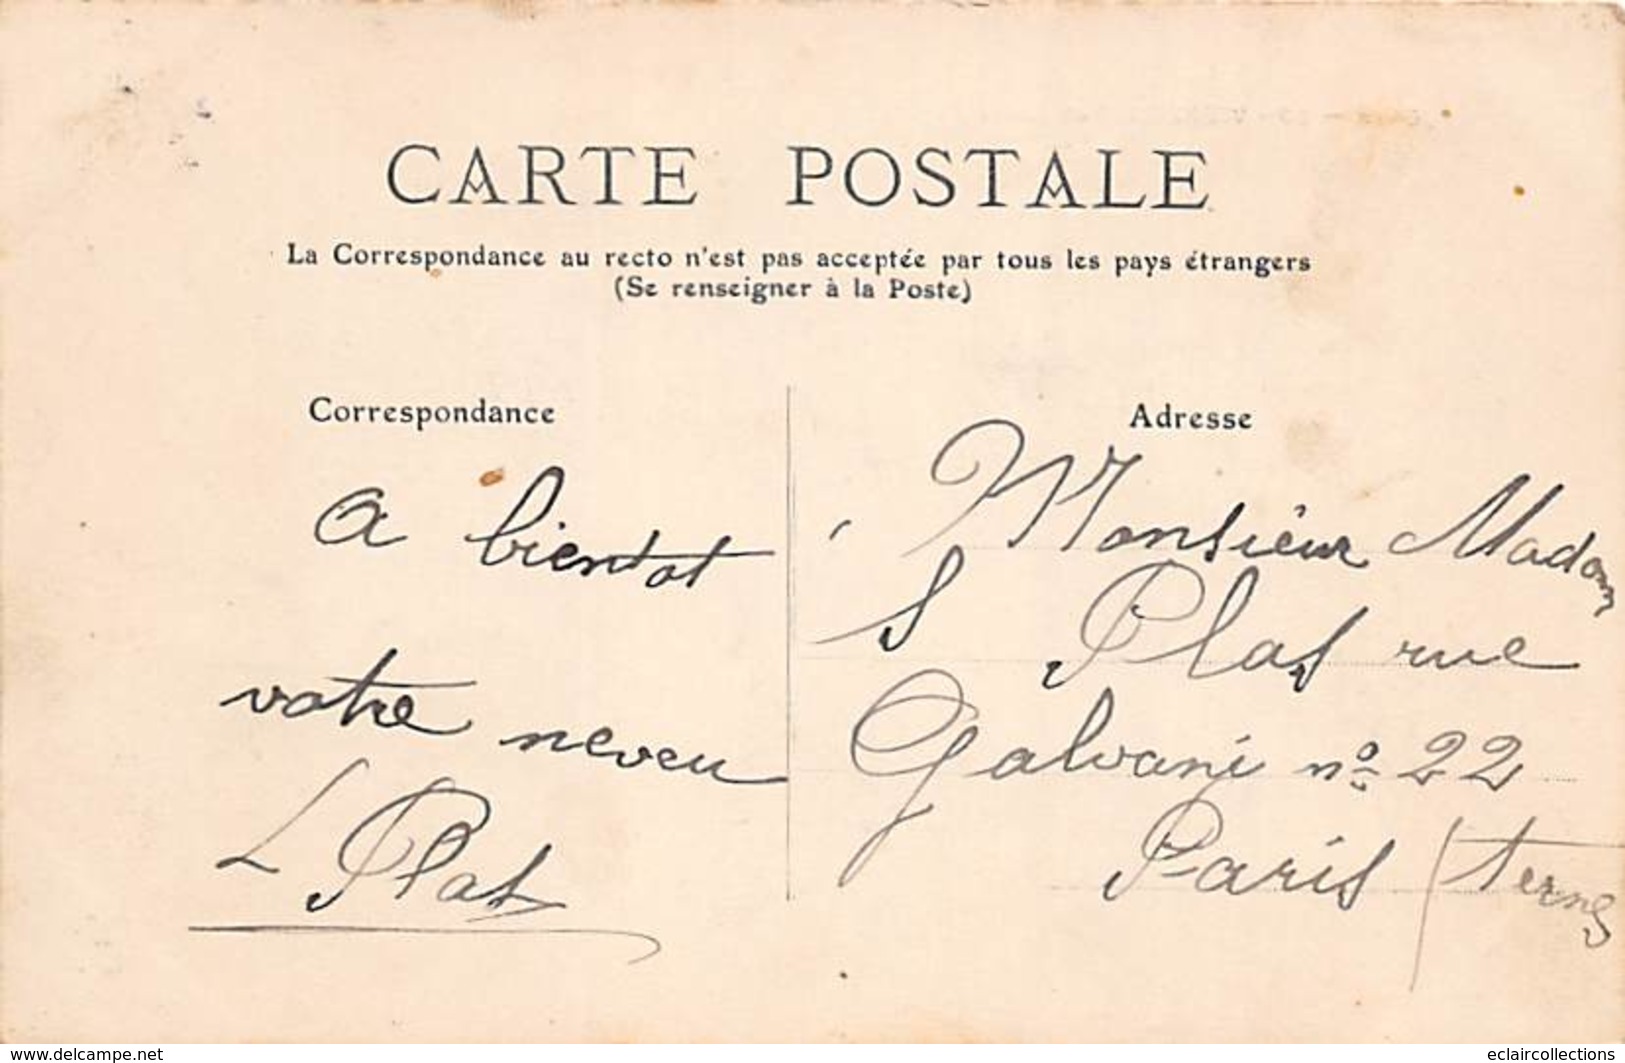 CARTE POSTALE
La Correspondance au recto n'est pas acceptée par tous les pays étrangers
(Se renseigner à la Poste)
Correspondance
a bientot
votre neveu
L Plas
Adresse
Monsieur Madam
S Plas rue
Galvani nº 22
Paris / Ternes
www.delcampe.net
eclaircollections